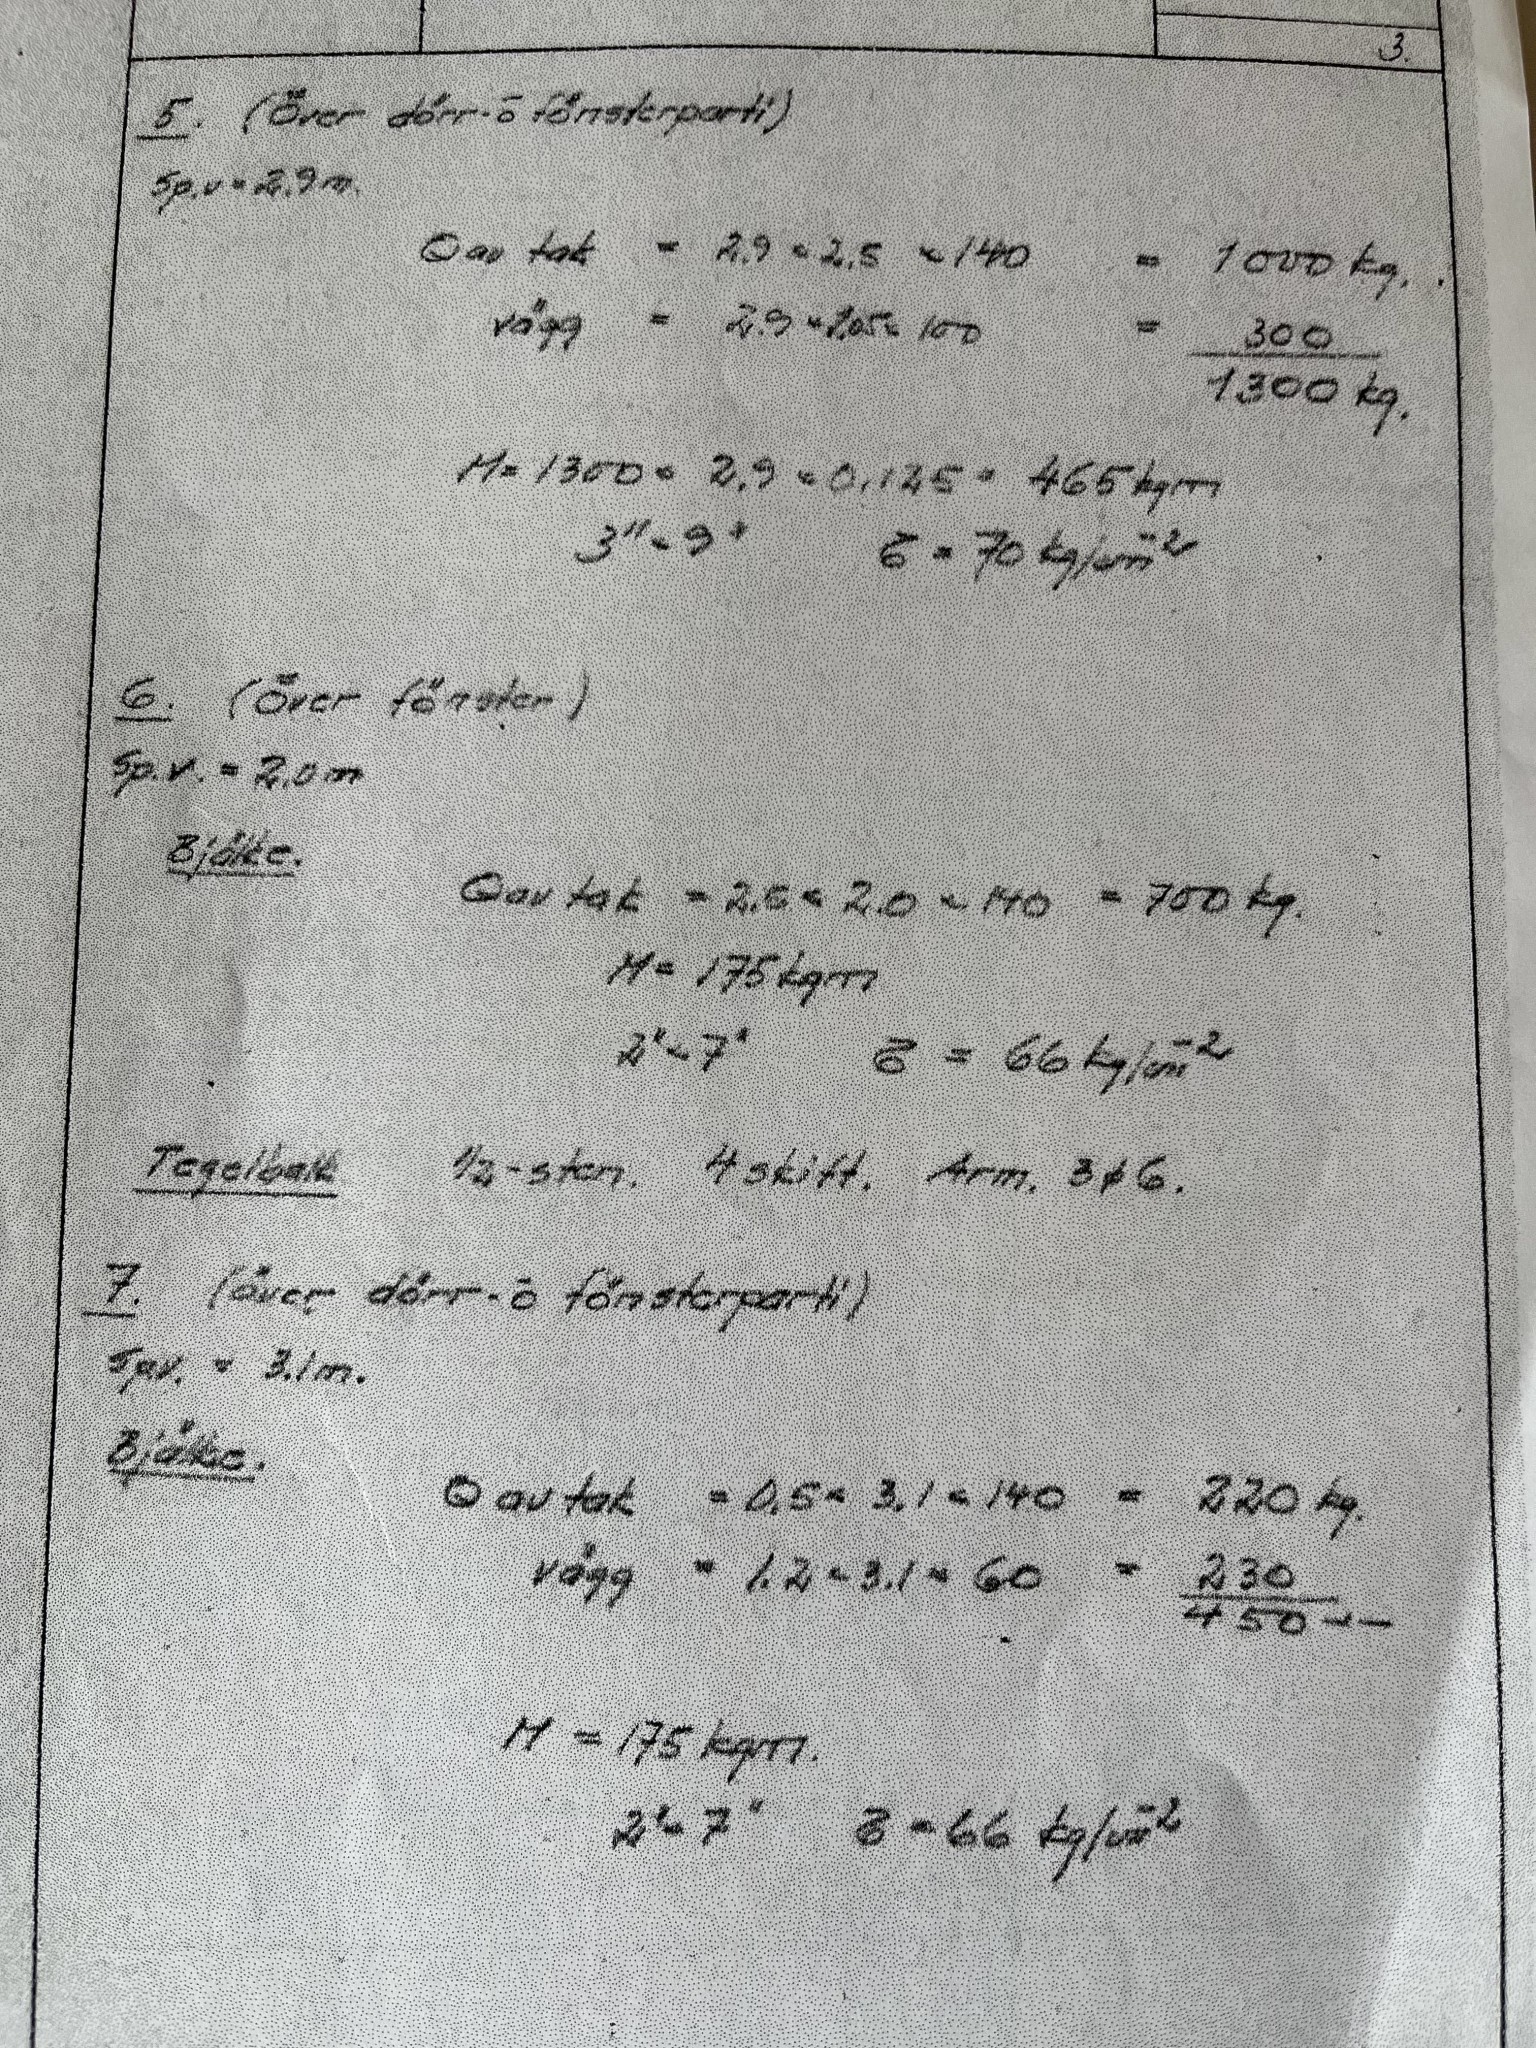 3.
5. (Över dörr-o fönsterparti)
Sp.v = 2.9 m.
Q av tak = 2.9 × 2.5 × 140 = 1000 kg.
vägg = 2.9 × 1.05 × 100 = 300
1300 kg.
M = 1300 × 2.9 × 0.125 = 465 kgm
3" × 9" σ = 70 kg/cm²
6. (Över fönster)
Sp.v. = 2.0 m
Bjälke.
Q av tak = 2.5 × 2.0 × 140 = 700 kg.
M = 175 kgm
2" × 7" σ = 66 kg/cm²
Tegelbalk 1/2-sten. 4 skift. Arm. 3 ϕ 6.
7. (över dörr-o fönsterparti)
Spv. = 3.1 m.
Bjälke.
Q av tak = 0.5 × 3.1 × 140 = 220 kg.
vägg = 1.2 × 3.1 × 60 = 230
450 --
M = 175 kgm.
2" × 7" σ = 66 kg/cm²